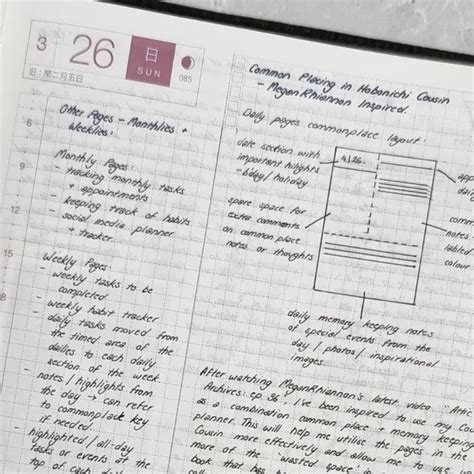 3 26 日
SUN 085
旧:閏二月五日
6
9
12
15
18
Other Pages - Monthlies +
Weeklies:
Monthly Pages:
- tracking monthly tasks
+ appointments
- keeping track of habits
- social media planner
+ tracker.
Weekly Pages:
- weekly tasks to be
completed
- weekly habit tracker
- daily tasks moved from
the timed area of the
dailies to each daily
section of the week.
- notes/highlights from
the day → can refer
to commonplace key
if needed.
- highlighted / all-day
tasks or events at the
top of each
Common Placing in Hobonichi Cousin
- MeganRhiannon Inspired.
Daily pages commonplace layout:
date section with
important hilights
- bday/holiday
4|26
spare space for
extra comments
on common place
notes or thoughts
notes
colour
daily memory keeping notes
of special events from the
day / photos / inspirational
images.
After watching MeganRhiannon's latest video
Archives: ep 36, I've been inspired to use my
as a combination common place + memory
planner. This will help me utilise the pages in the
Cousin more effectively and allow me to use
more of the 'wasted space'
book that has